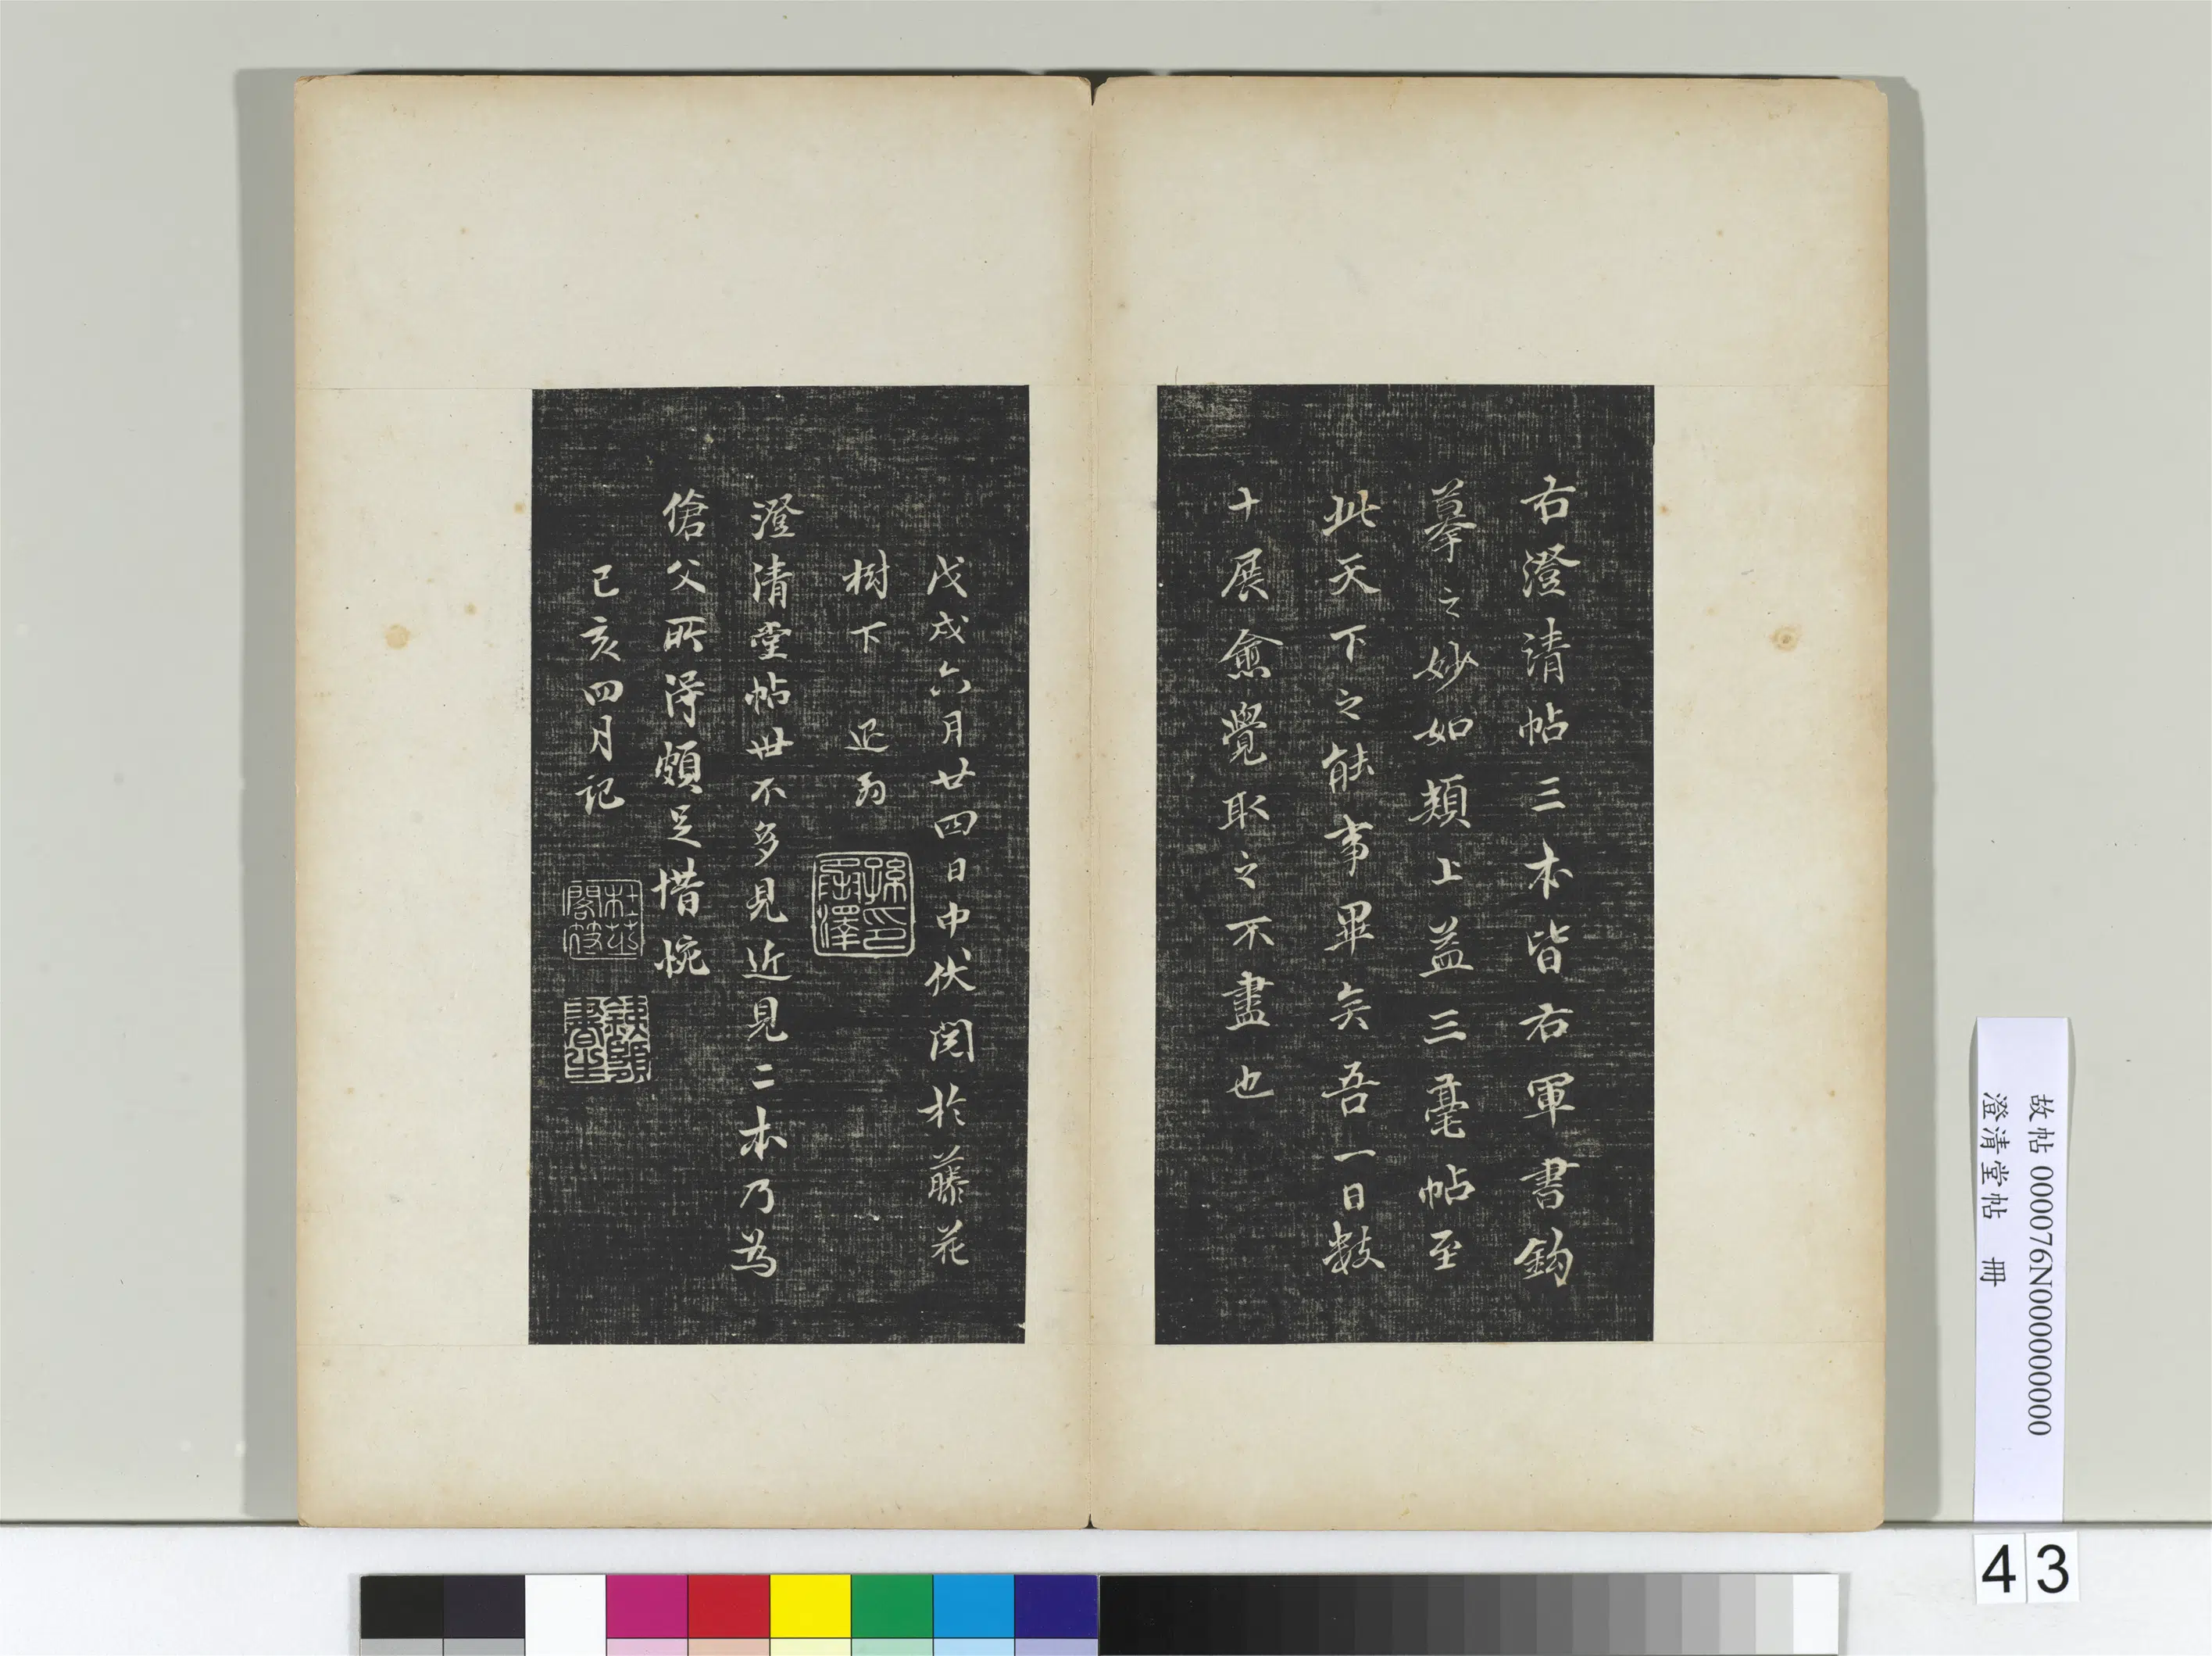 右澄清帖三本皆右軍書鈎
摹之妙如頰上益三毫帖至
此天下之能事畢矣吾一日數
十展愈覺取之不盡也
戊戌六月廿四日中伏閱於藤花
樹下 退翁
孫印承澤
澄清堂帖世不多見近見二本乃為
傖父所得頗足惜惋
己亥四月記
故帖 000076N000000000
澄清堂帖 冊
43